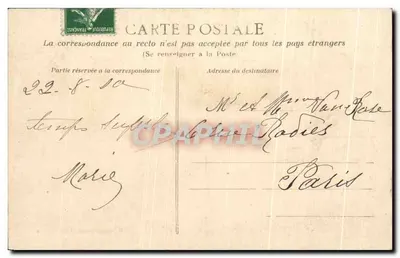 CARTE POSTALE
La correspondance au recto n'est pas acceptée par tous les pays étrangers
(Se renseigner à la Poste)
Partie réservée à la correspondance
Adresse du destinataire
22-8-10
Mr et Mme Van
temps
Marie
Rodier
Paris
CPAPHIL